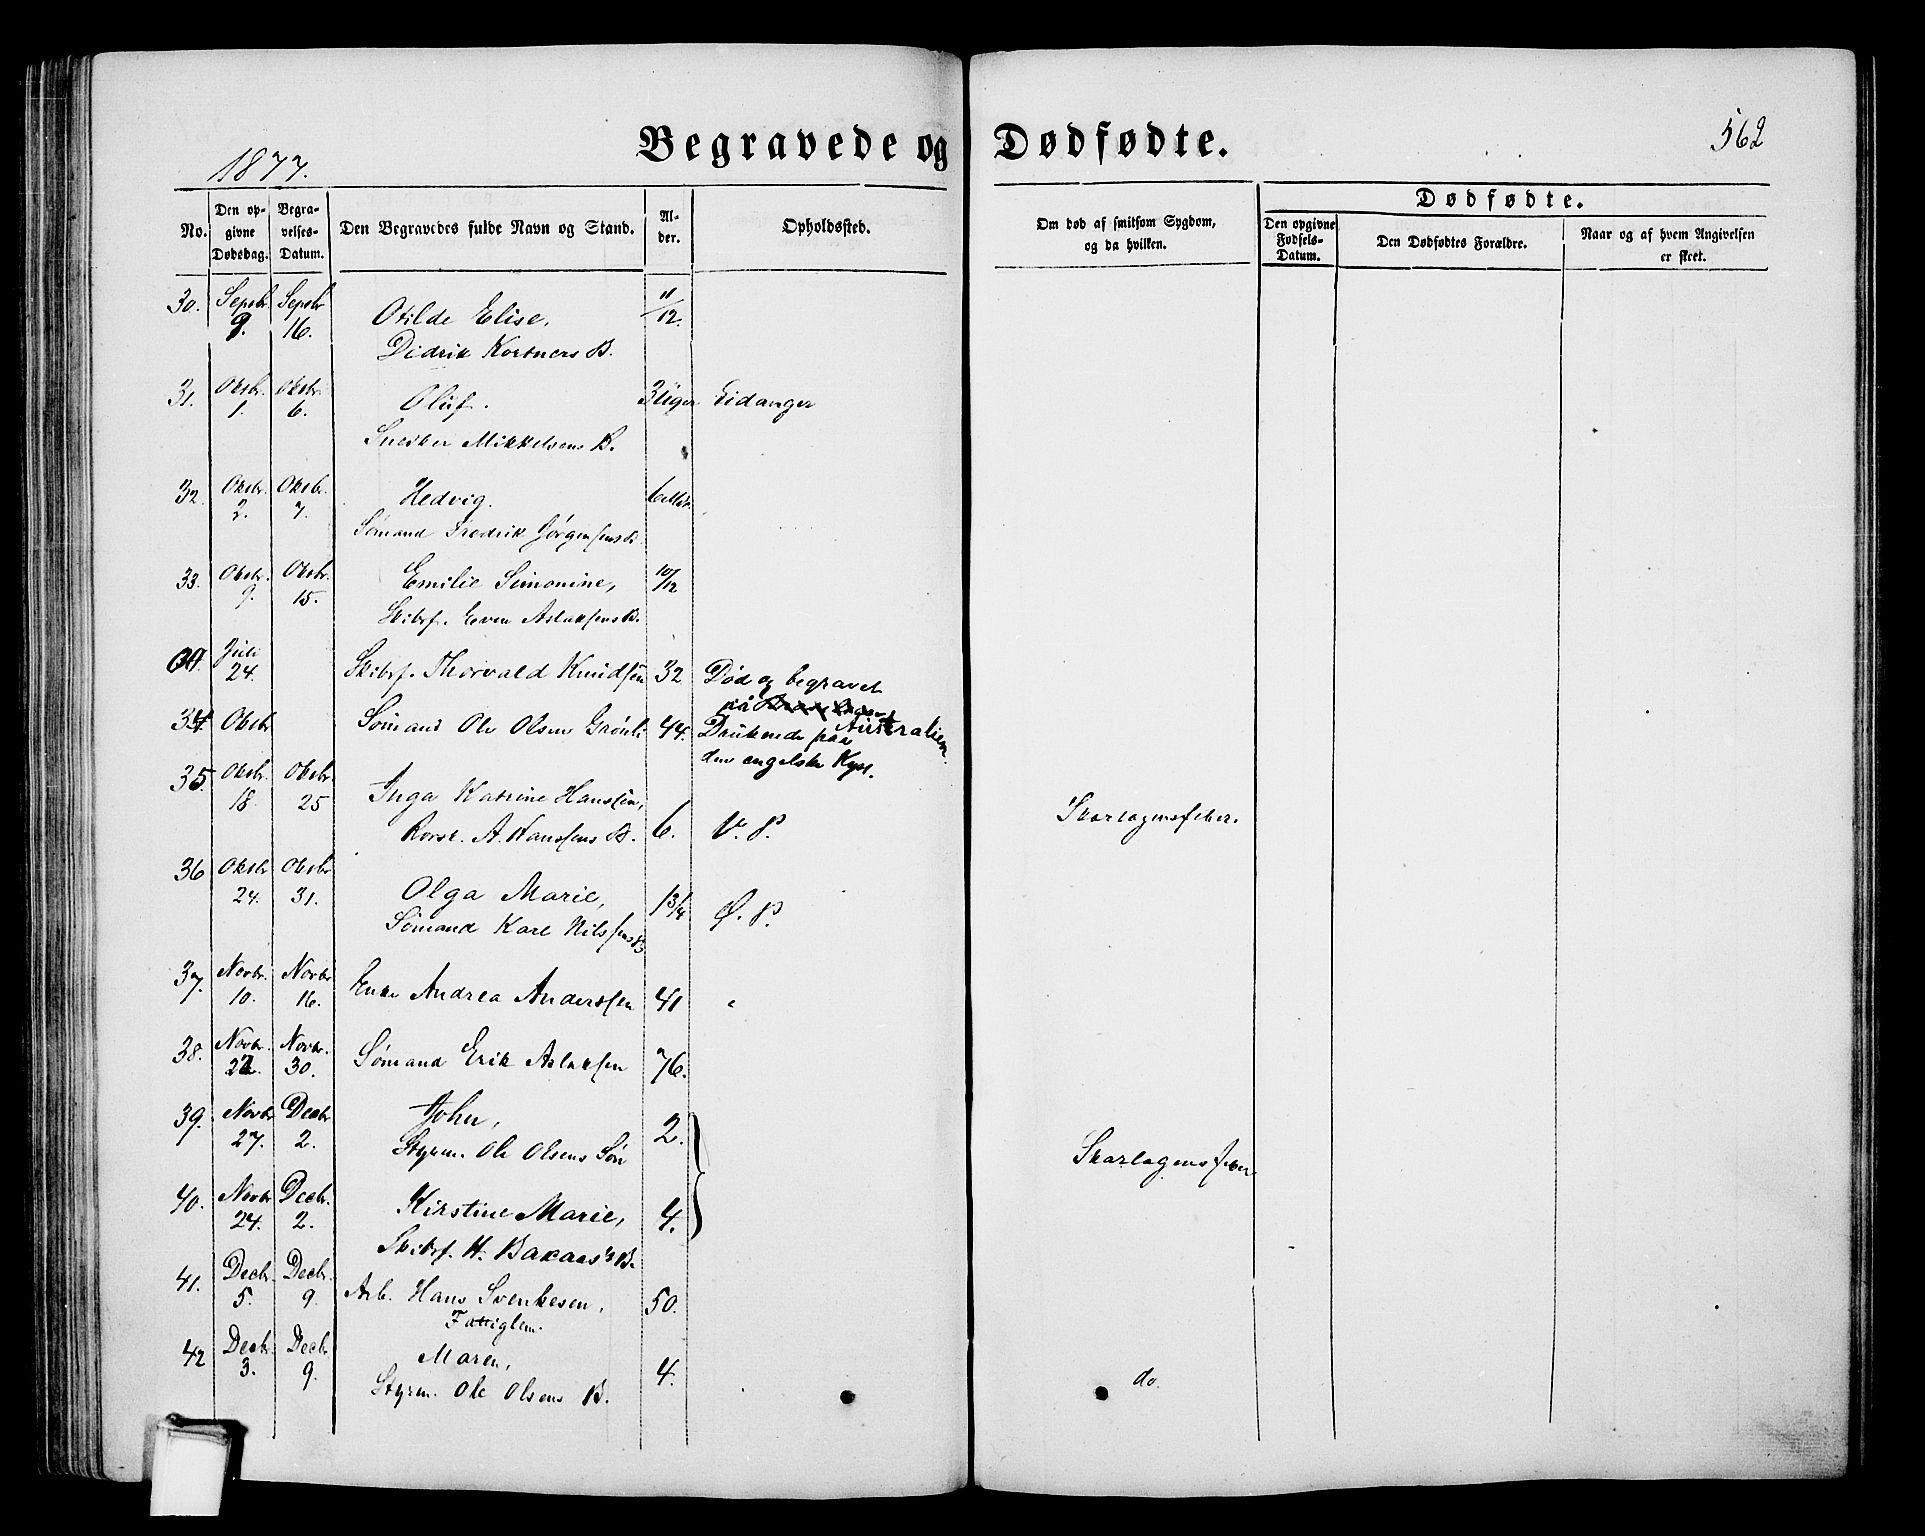 Begravede og Dødfødte.
562
1877.
No.
Den opgivne Dødsdag.
Begravelses-Datum.
Den Begravedes fulde Navn og Stand.
Alder.
Opholdssted.
Om død af smitsom Sygdom, og da hvilken.
Dødfødte.
Den opgivne Fødsels-Datum.
Den Dødfødtes Forældre.
Naar og af hvem Angivelsen er skeet.
30. Septbr 9. Septbr 16. Otilde Elise, 11/12.
Didrik Kortners B.
31. Oktbr. 1. Oktbr. 6. Oluf. 3 Uger Eidanger
Snedker Mikkelsens B.
32. Oktbr. 2. Oktbr. 7. Hedvig. 6 Mdr.
Sømand Fredrik Jørgensens B.
33. Oktbr. 9. Oktbr. 15. Emilie Simonine, 10/12
Skibsf. Even Aslaksens B.
Juli 24. Skibsf. Thorvald Knudsen 32 Død og begravet
på Australien
34. Oktbr Sømand Ole Olsen Grønli 44. Druknede paa
den engelske Kyst.
35 Oktbr. 18. Oktbr 25 Inga Katrine Hanssen,
A. Hanssens B. 6. V. P. Skarlagensfeber.
36 Oktbr 24. Oktbr 31. Olga Marie, 1 3/4 Ø. P.
Sømand Karl Nilssens B
37. Novbr. 10. Novbr 16. Enke Andrea Anderssen 41 "
38. Novbr. 22. Novbr. 30. Sømand Erik Aslaksen 76.
39. Novbr 27. Decbr 2. John, 2.
Styrm. Ole Olsens Søn Skarlagensfeber
40. Novbr 24. Decbr. 2. Kirstine Marie, 4.
Skibsf. H. Bakaas's B.
41. Decbr. 5. Decbr. 9. Arb. Hans Svenkesen, 50.
Fattiglem.
42 Decbr. 3. Decbr 9. Maren, 4. do.
Styrm. Ole Olsens B.